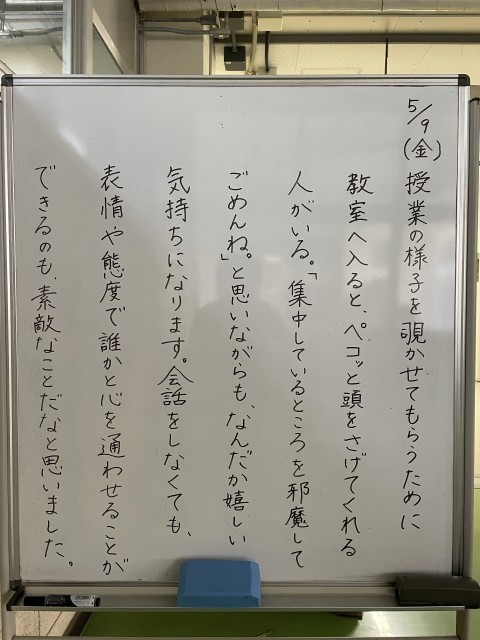 5/9(金) 授業の様子を覗かせてもらうために
教室へ入ると、ペコッと頭をさげてくれる
人がいる。「集中しているところを邪魔して
ごめんね。」と思いながらも、なんだか嬉しい
気持ちになります。会話をしなくても、
表情や態度で誰かと心を通わせることが
できるのも、素敵なことだなと思いました。